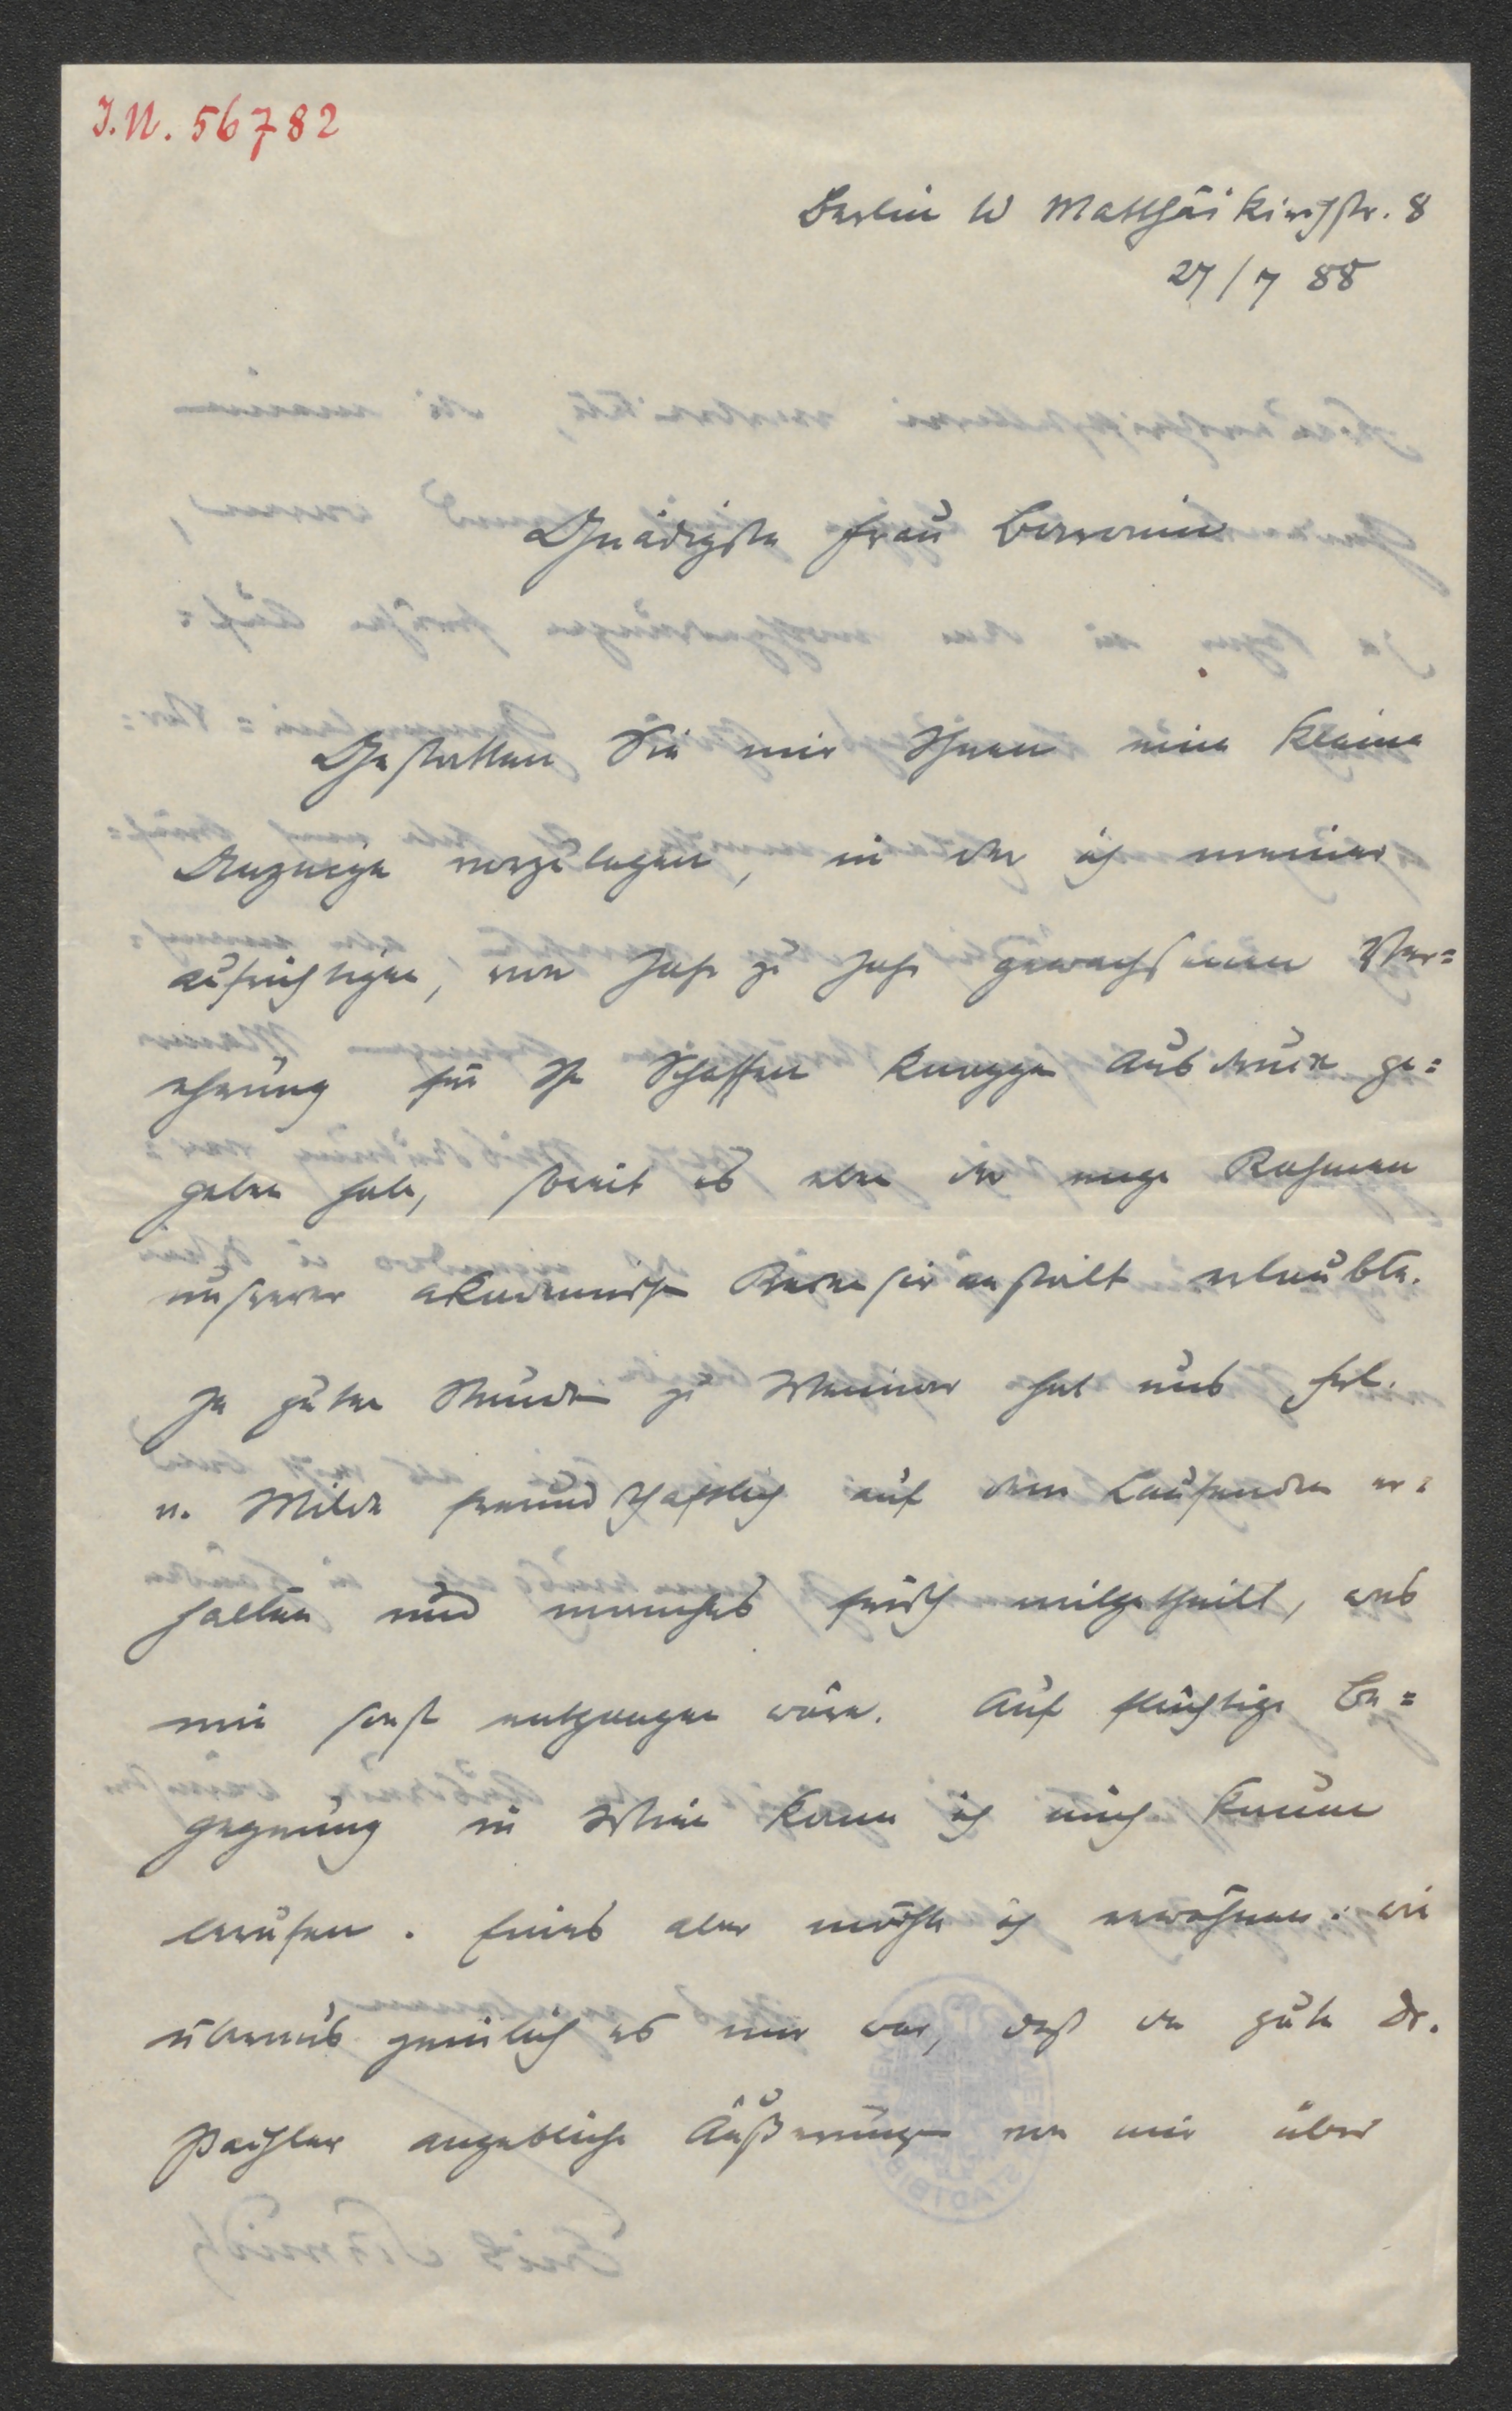 I.N. 56782
Berlin W Matthäikirchstr. 8
27/7 88
Gnädigste Frau Baronin
Gestatten Sie mir Ihnen eine kleine
Anzeige vorzulegen, in der ich meiner
aufrichtigen, von Jahr zu Jahr gewachsenen Ver=
ehrung für Ihr Schaffen knappen Ausdruck ge=
geben habe, soweit es eben der enge Rahmen
unserer akademischen Recensiranstalt erlaubte.
In guten Stunden zu Weimar hat uns Frl.
v. Milde freundschaftlich auf dem Laufenden er=
halten und manches frisch mitgetheilt, was
mir sonst entgangen wäre. Auf flüchtige Be=
gegnung in Wien kann ich mich kaum
berufen. Eines aber möchte ich erwähnen: wie
überaus peinlich es mir war, daß der gute Dr.
Pachler angebliche Äußerungen von mir über